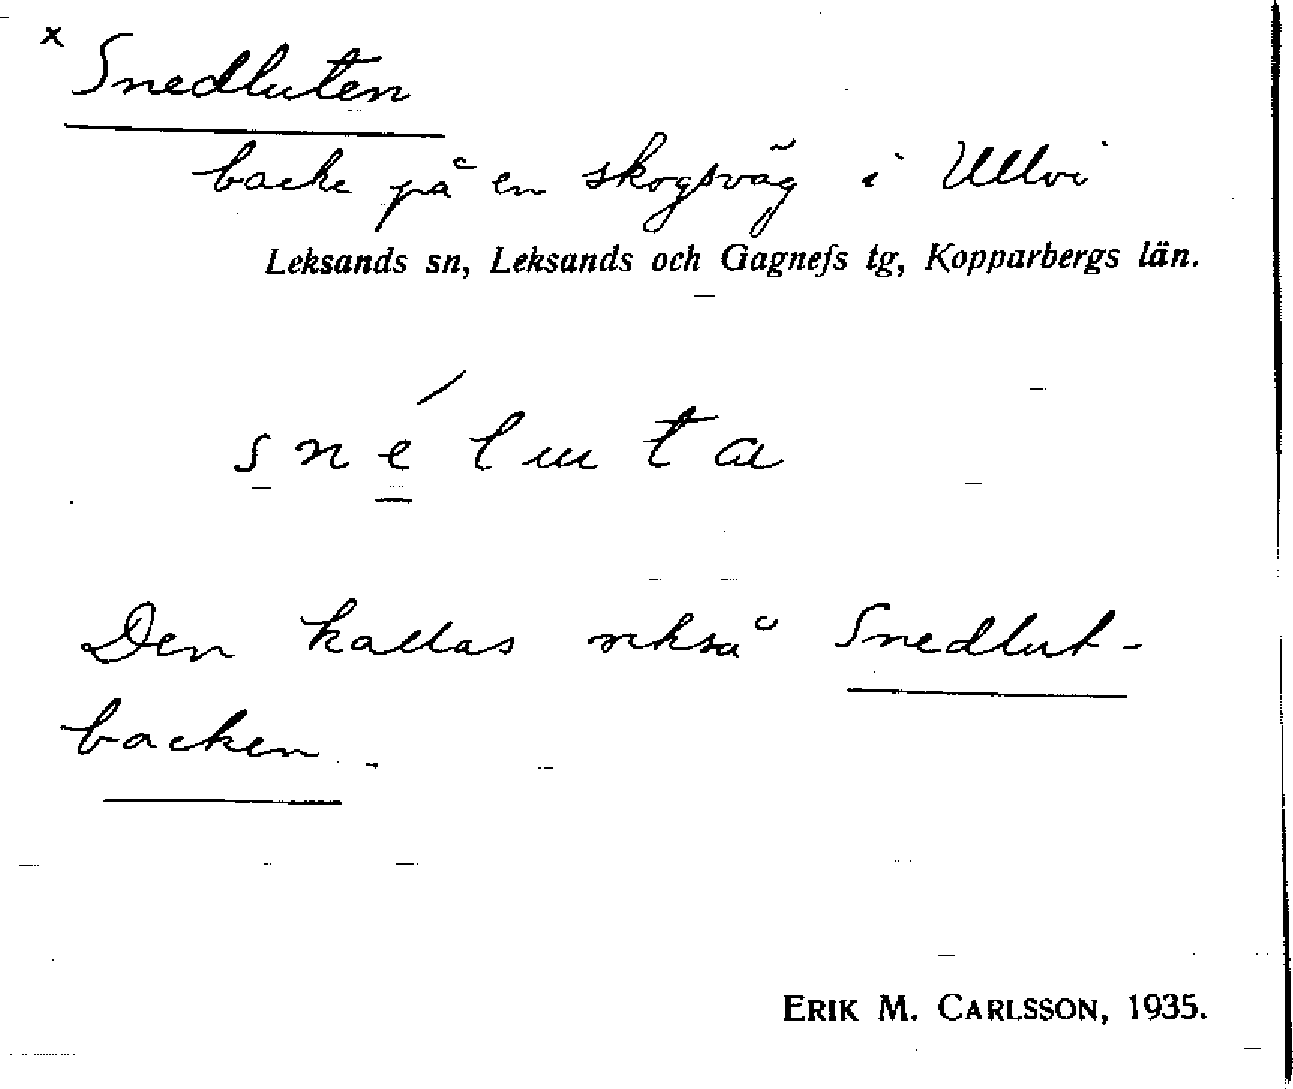 x Snedluten
backe på en skogsväg i Ullvi
Leksands sn, Leksands och Gagnefs tg, Kopparbergs län.
snéluta
Den kallas också Snedlut-
backen.
ERIK M. CARLSSON, 1935.